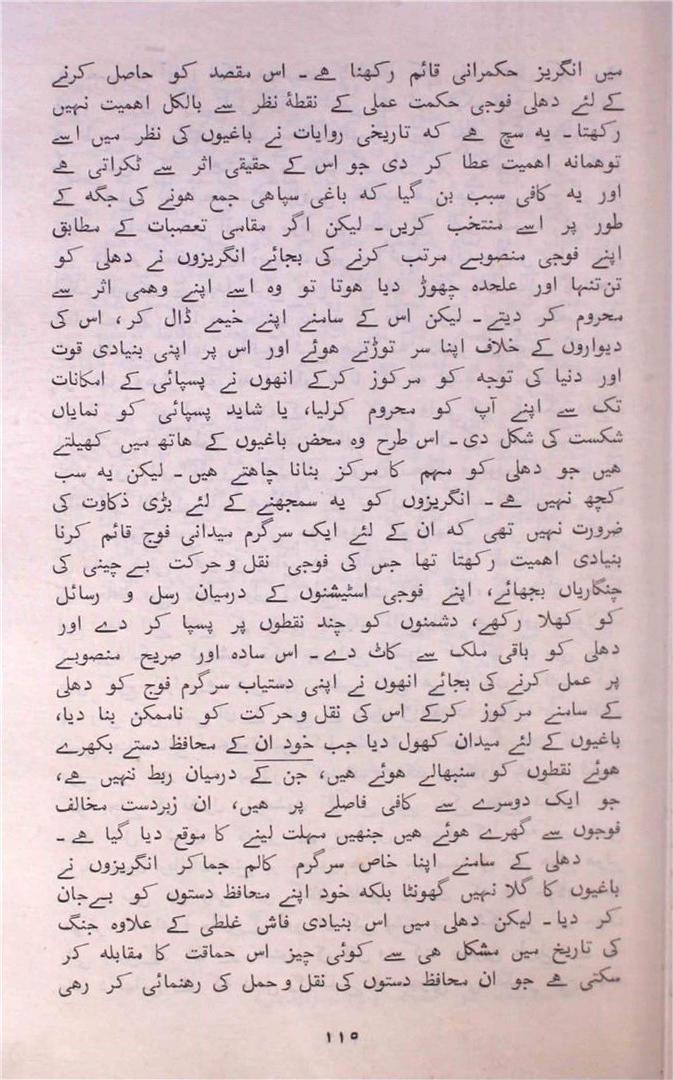 میں انگریز حکمرانی قائم رکھنا ھے۔ اس مقصد کو حاصل کرنے
کے لئے دھلی فوجی حکمت عملی کے نقطۂ نظر سے بالکل اھمیت نہیں
رکھتا۔ یہ سچ ھے کہ تاریخی روایات نے باغیوں کی نظر میں اسے
توھمانہ اھمیت عطا کر دی جو اس کے حقیقی اثر سے ٹکراتی ھے
اور یہ کافی سبب بن گیا کہ باغی سپاھی جمع ھونے کی جگہ کے
طور پر اسے منتخب کریں۔ لیکن اگر مقامی تعصبات کے مطابق
اپنے فوجی منصوبے مرتب کرنے کی بجائے انگریزوں نے دھلی کو
تن تنہا اور علحدہ چھوڑ دیا ھوتا تو وہ اسے اپنے وھمی اثر سے
محروم کر دیتے۔ لیکن اس کے سامنے اپنے خیمے ڈال کر، اس کی
دیواروں کے خلاف اپنا سر توڑتے ھوئے اور اس پر اپنی بنیادی قوت
اور دنیا کی توجہ کو مرکوز کرکے انھوں نے پسپائی کے امکانات
تک سے اپنے آپ کو محروم کرلیا، یا شاید پسپائی کو نمایاں
شکست کی شکل دی۔ اس طرح وہ محض باغیوں کے ھاتھ میں کھیلتے
ھیں جو دھلی کو مہم کا مرکز بنانا چاھتے ھیں۔ لیکن یہ سب
کچھ نہیں ھے۔ انگریزوں کو یہ سمجھنے کے لئے بڑی ذکاوت کی
ضرورت نہیں تھی کہ ان کے لئے ایک سرگرم میدانی فوج قائم کرنا
بنیادی اھمیت رکھتا تھا جس کی فوجی نقل و حرکت بےچینی کی
چنگاریاں بجھائے، اپنے فوجی اسٹیشنوں کے درمیان رسل و رسائل
کو کھلا رکھے، دشمنوں کو چند نقطوں پر پسپا کر دے اور
دھلی کو باقی ملک سے کاٹ دے۔ اس سادہ اور صریح منصوبے
پر عمل کرنے کی بجائے انھوں نے اپنی دستیاب سرگرم فوج کو دھلی
کے سامنے مرکوز کرکے اس کی نقل و حرکت کو ناممکن بنا دیا،
باغیوں کے لئے میدان کھول دیا جب خود ان کے محافظ دستے بکھرے
ھوئے نقطوں کو سنبھالے ھوئے ھیں، جن کے درمیان ربط نہیں ھے،
جو ایک دوسرے سے کافی فاصلے پر ھیں، ان زبردست مخالف
فوجوں سے گھرے ھوئے ھیں جنھیں مہلت لینے کا موقع دیا گیا ھے۔
دھلی کے سامنے اپنا خاص سرگرم کالم جماکر انگریزوں نے
باغیوں کا گلا نہیں گھونٹا بلکہ خود اپنے محافظ دستوں کو بےجان
کر دیا۔ لیکن دھلی میں اس بنیادی فاش غلطی کے علاوہ جنگ
کی تاریخ میں مشکل ھی سے کوئی چیز اس حماقت کا مقابلہ کر
سکتی ھے جو ان محافظ دستوں کی نقل و حمل کی رھنمائی کر رھی
۱۱۵